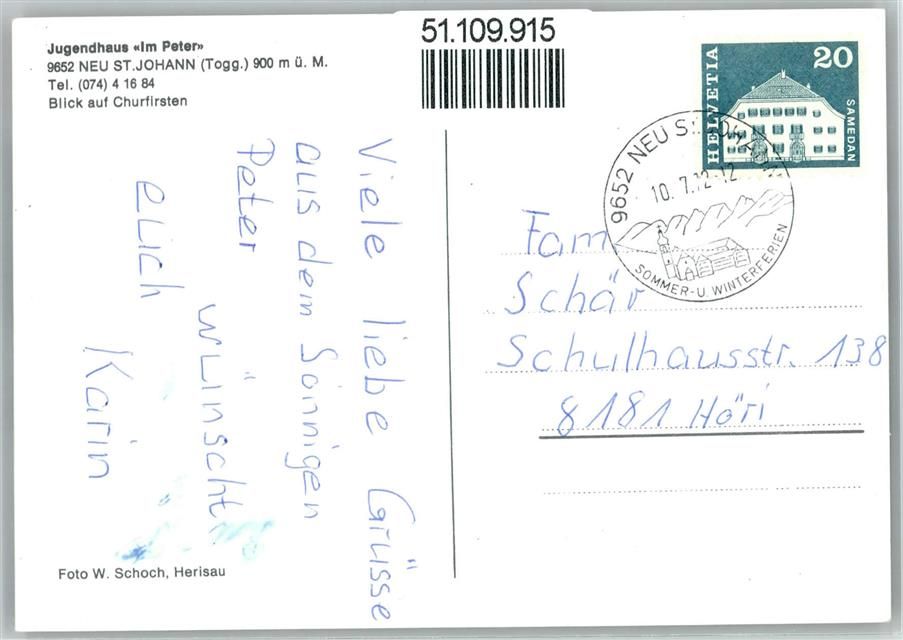 Jugendhaus «Im Peter»
9652 NEU ST.JOHANN (Togg.) 900 m ü. M.
Tel. (074) 4 16 84
Blick auf Churfirsten
51.109.915
HELVETIA
20
SAMEDAN
9652 NEU ST. JOHANN
10. 7.72-12
SOMMER- U. WINTERFERIEN
Viele liebe Grüsse
aus dem Sonnigen
Peter wünscht
euch
Karin
Fam.
Schär
Schulhausstr. 138
8181 Höri
Foto W. Schoch, Herisau